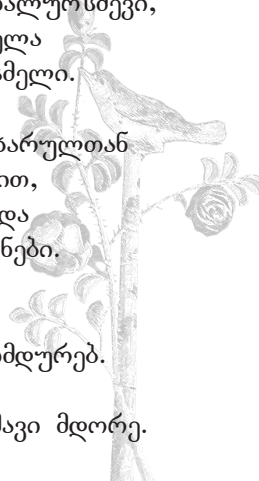 ბალურსმევი,
ელა
მელი.
ბარულთან
ით,
და
ნები.
მდურებ.
შავი მდორე.